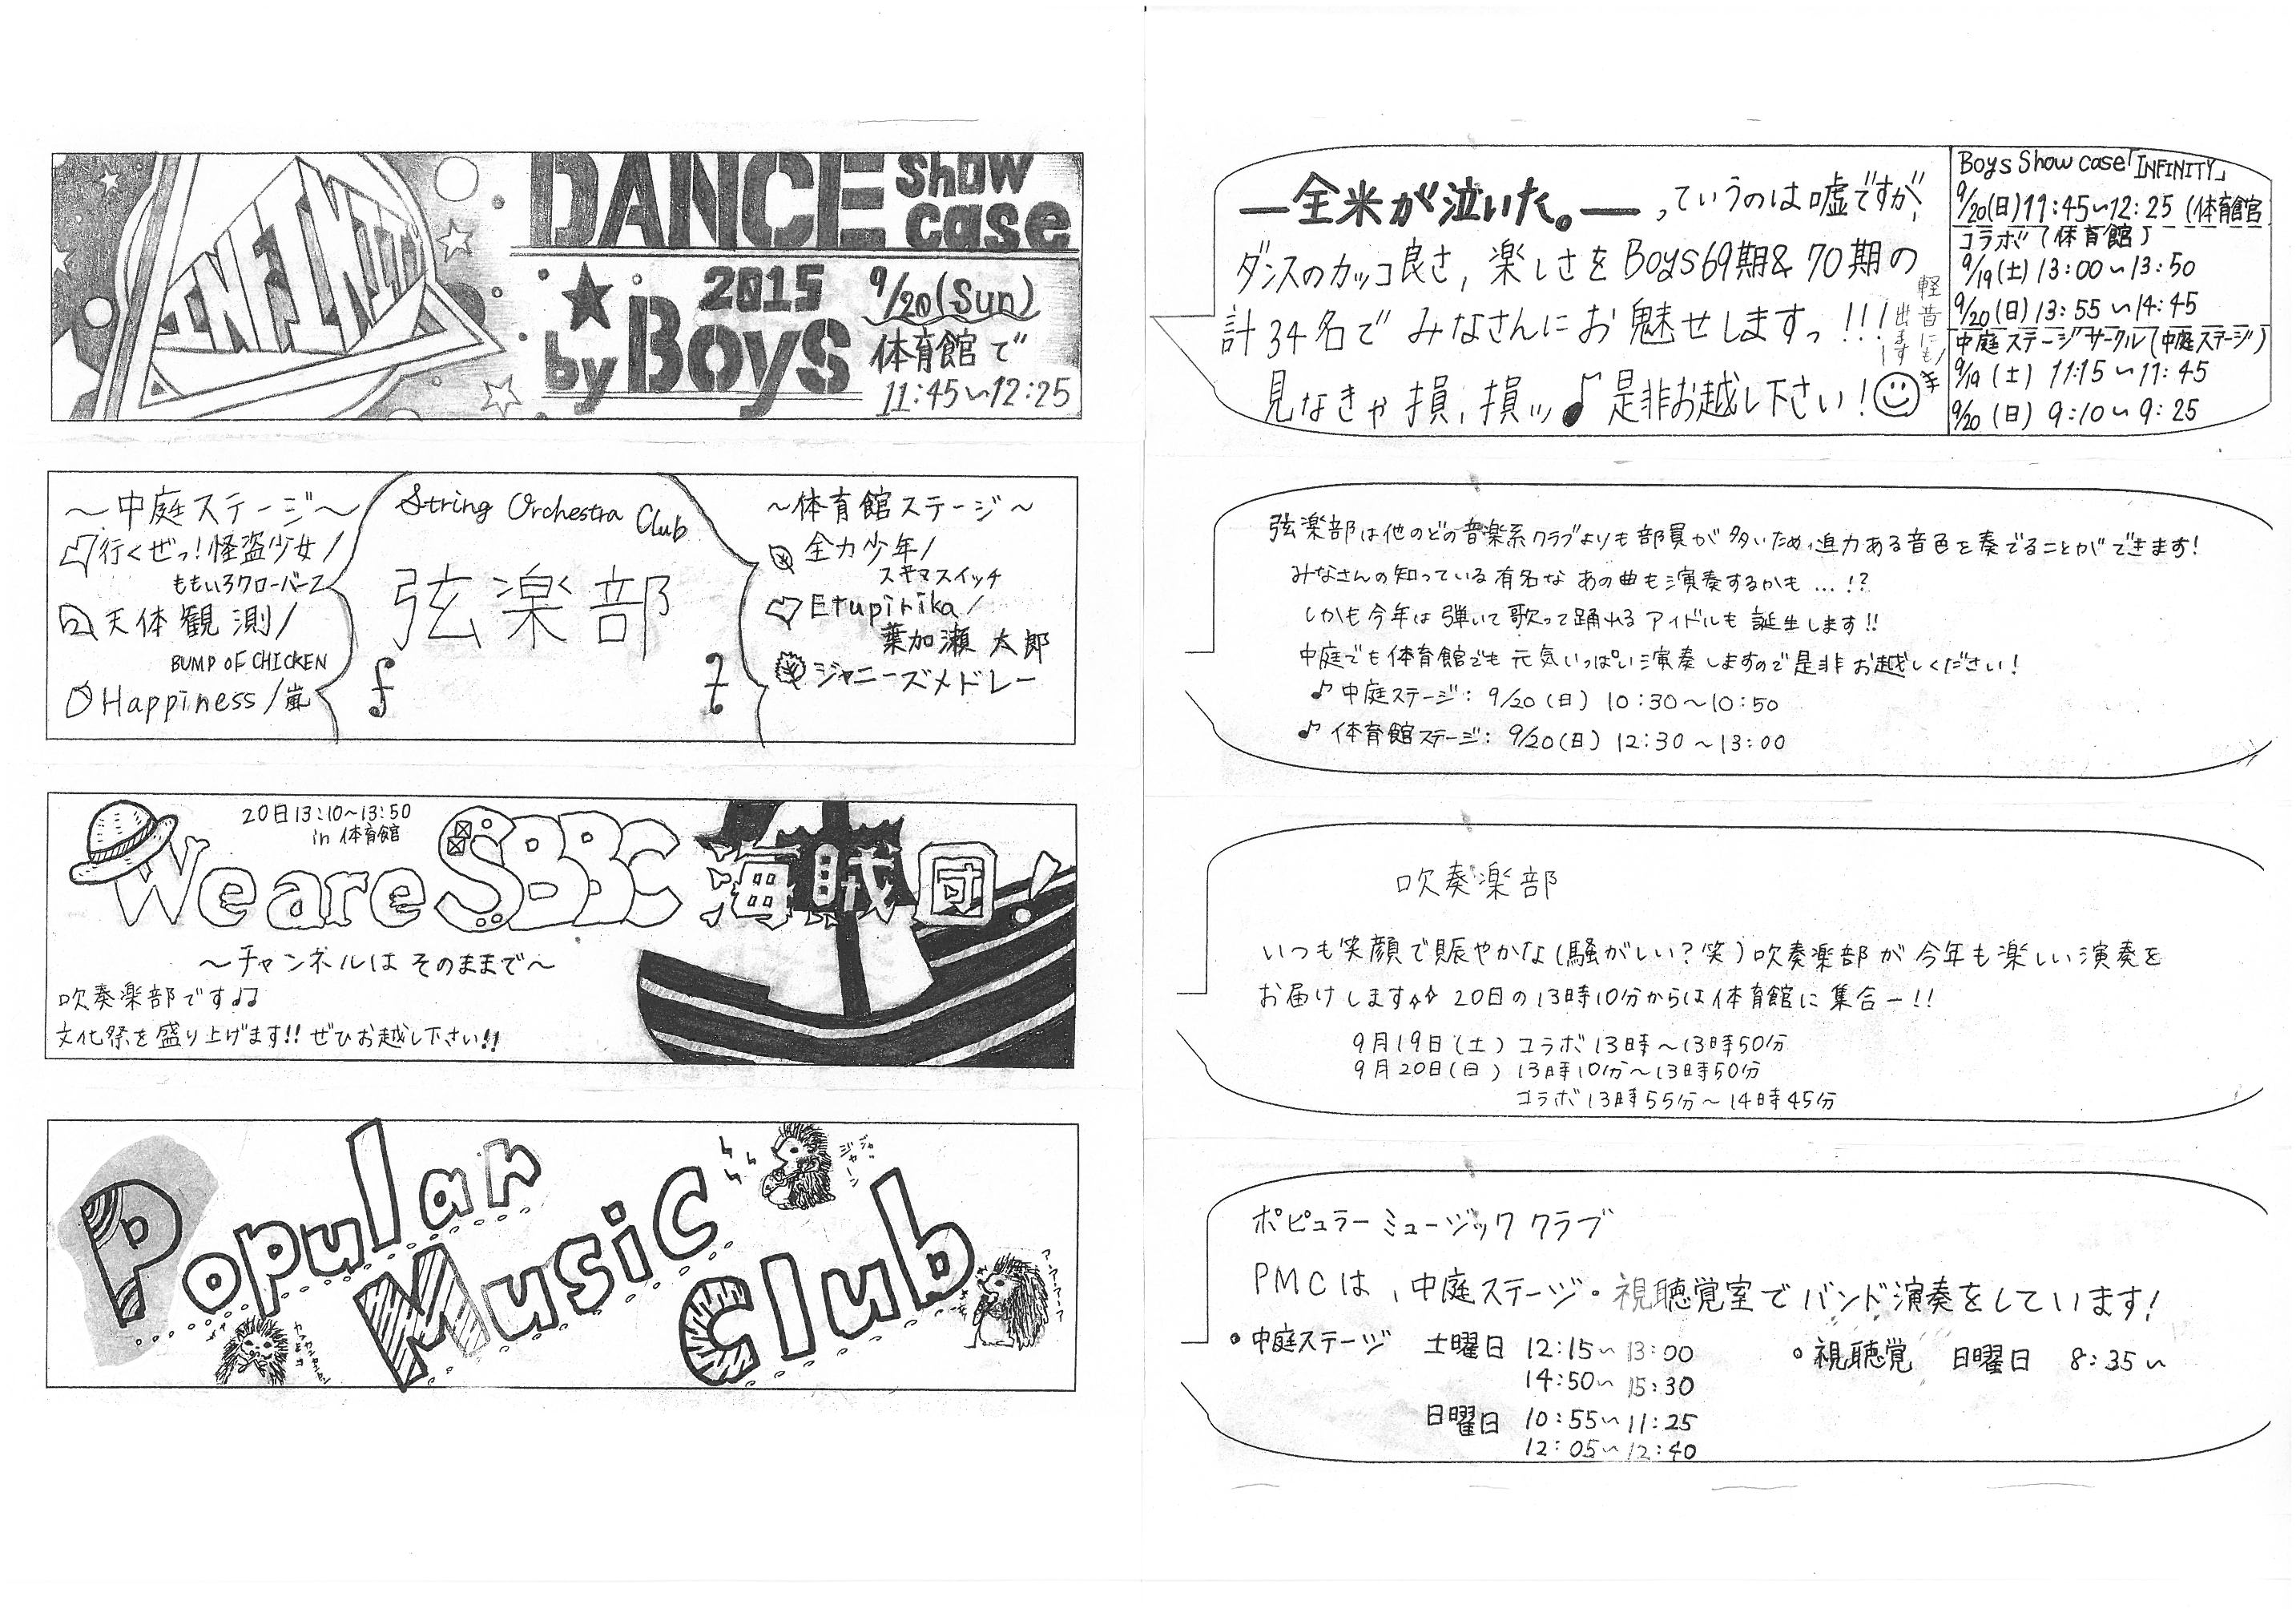 INFINITY
DANCE Show case
2015
by Boys
9/20(Sun)
体育館で
11:45〜12:25
―全米が泣いた。― っていうのは嘘ですが、
ダンスのカッコ良さ、楽しさをBoys69期&70期の
計34名で みなさんにお魅せしますっ!!!
軽音にも
出ます!
見なきゃ損、損ッ♪是非お越し下さい!
Boys Show case「INFINITY」
9/20(日)11:45〜12:25 (体育館
コラボ(体育館)
9/19(土)13:00〜13:50
9/20(日)13:55〜14:45
中庭ステージサークル(中庭ステージ)
9/19(土) 11:15〜11:45
9/20(日) 9:10〜9:25
〜中庭ステージ〜
行くぜっ!怪盗少女/
ももいろクローバーZ
天体観測/
BUMP OF CHICKEN
Happiness/嵐
String Orchestra Club
弦楽部
〜体育館ステージ〜
全力少年/
スキマスイッチ
Etupirika/
葉加瀬 太郎
ジャニーズメドレー
弦楽部は他のどの音楽系クラブよりも部員が多いため、迫力ある音色を奏でることができます!
みなさんの知っている有名なあの曲も演奏するかも…!?
しかも今年は弾いて歌って踊れるアイドルも誕生します!!
中庭でも体育館でも元気いっぱい演奏しますので是非お越しください!
♪中庭ステージ: 9/20(日) 10:30〜10:50
♪体育館ステージ: 9/20(日) 12:30〜13:00
20日13:10〜13:50
in 体育館
We are SBBC 海賊団!
〜チャンネルはそのままで〜
吹奏楽部です♪♫
文化祭を盛り上げます!! ぜひお越し下さい!!
吹奏楽部
いつも笑顔で賑やかな(騒がしい?笑)吹奏楽部が今年も楽しい演奏を
お届けします✧✧ 20日の13時10分からは体育館に集合ー!!
9月19日(土) コラボ13時〜13時50分
9月20日(日) 13時10分〜13時50分
コラボ13時55分〜14時45分
Popular
Music
Club
ポピュラーミュージッククラブ
PMCは、中庭ステージ・視聴覚室でバンド演奏をしています!
•中庭ステージ 土曜日 12:15〜13:00
14:50〜15:30
日曜日 10:55〜11:25
12:05〜12:40
•視聴覚 日曜日 8:35〜